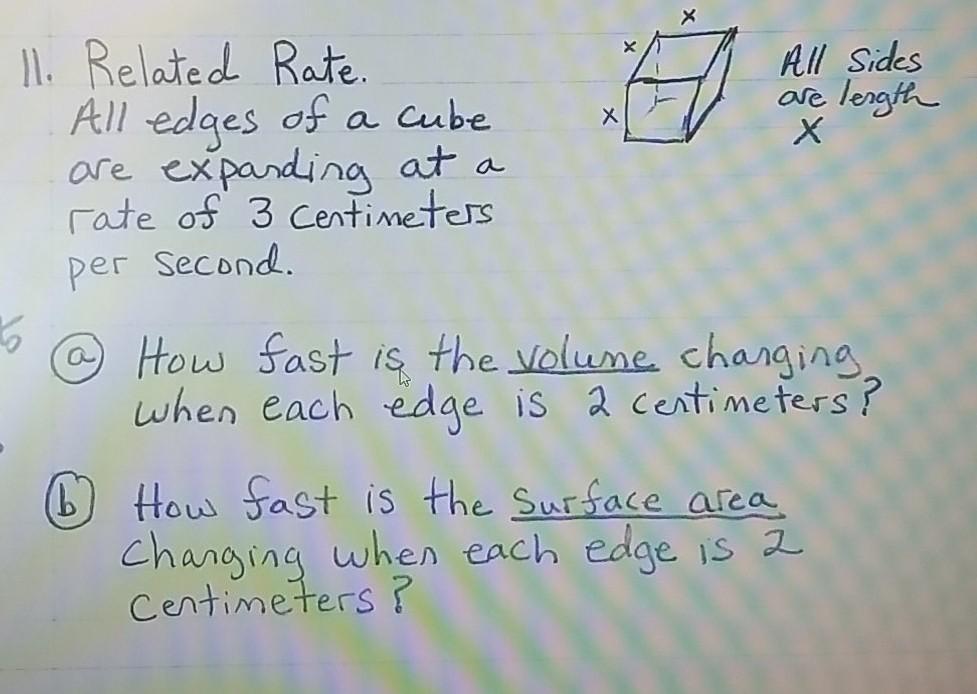 11. Related Rate.
All edges of a cube
are expanding at a
rate of 3 centimeters
per second.
x
x
x
All sides
are length
x
ⓐ How fast is the volume changing
when each edge is 2 centimeters?
ⓑ How fast is the surface area
changing when each edge is 2
centimeters?